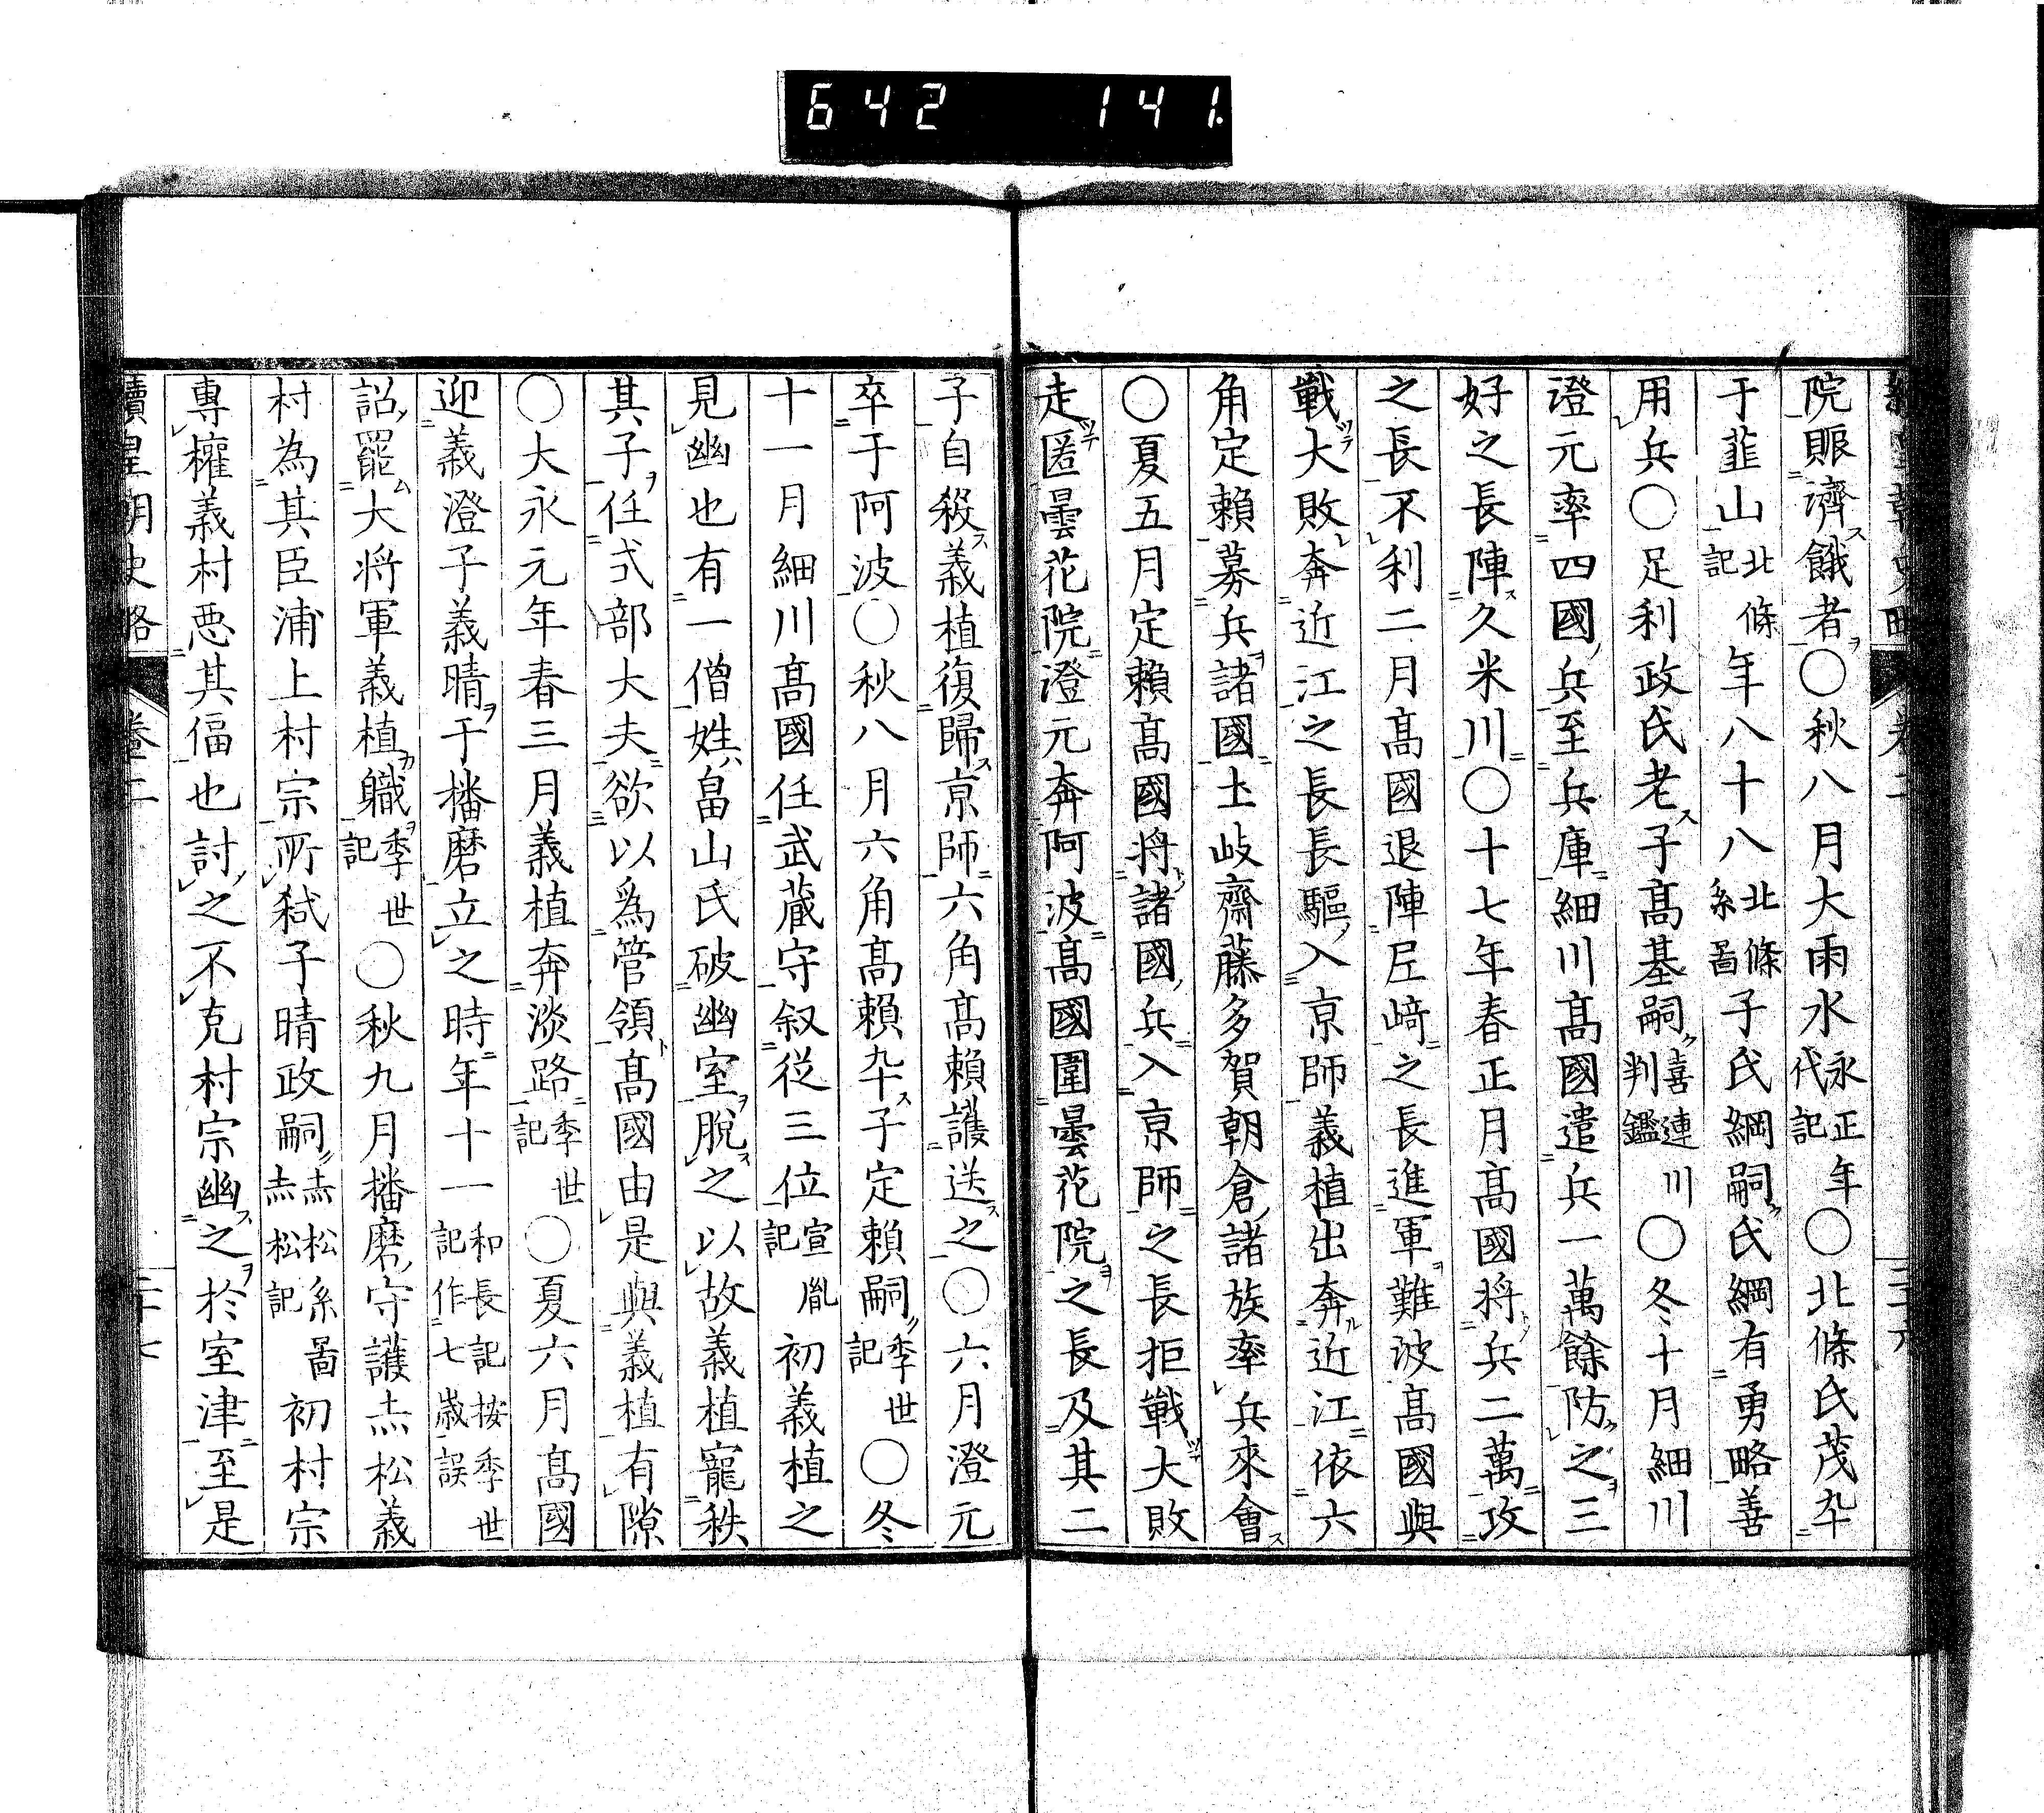 642 141
續皇朝史略 卷二
院賑濟餓者○秋八月大雨水永正年代記○北條氏茂卒
于韮山北條記年八十八北條系圖子氏綱嗣氏綱有勇略善
用兵○足利政氏老子髙基嗣喜連川判鑑○冬十月細川
澄元率四國兵至兵庫細川髙國遣兵一萬餘防之三
好之長陣久米川○十七年春正月髙國将兵二萬攻
之長不利二月髙國退陣尼﨑之長進軍難波髙國與
戰大敗奔近江之長長驅入京師義植出奔近江依六
角定賴募兵諸國土岐齋藤多賀朝倉諸族率兵來會
○夏五月定賴髙國将諸國兵入京師之長拒戰大敗
走匿曇花院澄元奔阿波髙國圍曇花院之長及其二
子自殺義植復歸京師六角髙賴護送之○六月澄元
卒于阿波○秋八月六角髙賴卒子定賴嗣季世記○冬
十一月細川髙國任武蔵守叙從三位宣胤記初義植之
見幽也有一僧姓畠山氏破幽室脫之以故義植寵秩
其子任式部大夫欲以爲管領髙國由是與義植有隙
○大永元年春三月義植奔淡路季世記○夏六月髙國
迎義澄子義晴于播磨立之時年十一和長記按季世記作七歳誤
詔罷大将軍義植職季世記○秋九月播磨守護赤松義
村為其臣浦上村宗所弑子晴政嗣赤松系圖赤松記初村宗
專權義村惡其偪也討之不克村宗幽之於室津至是
續皇朝史略 卷二